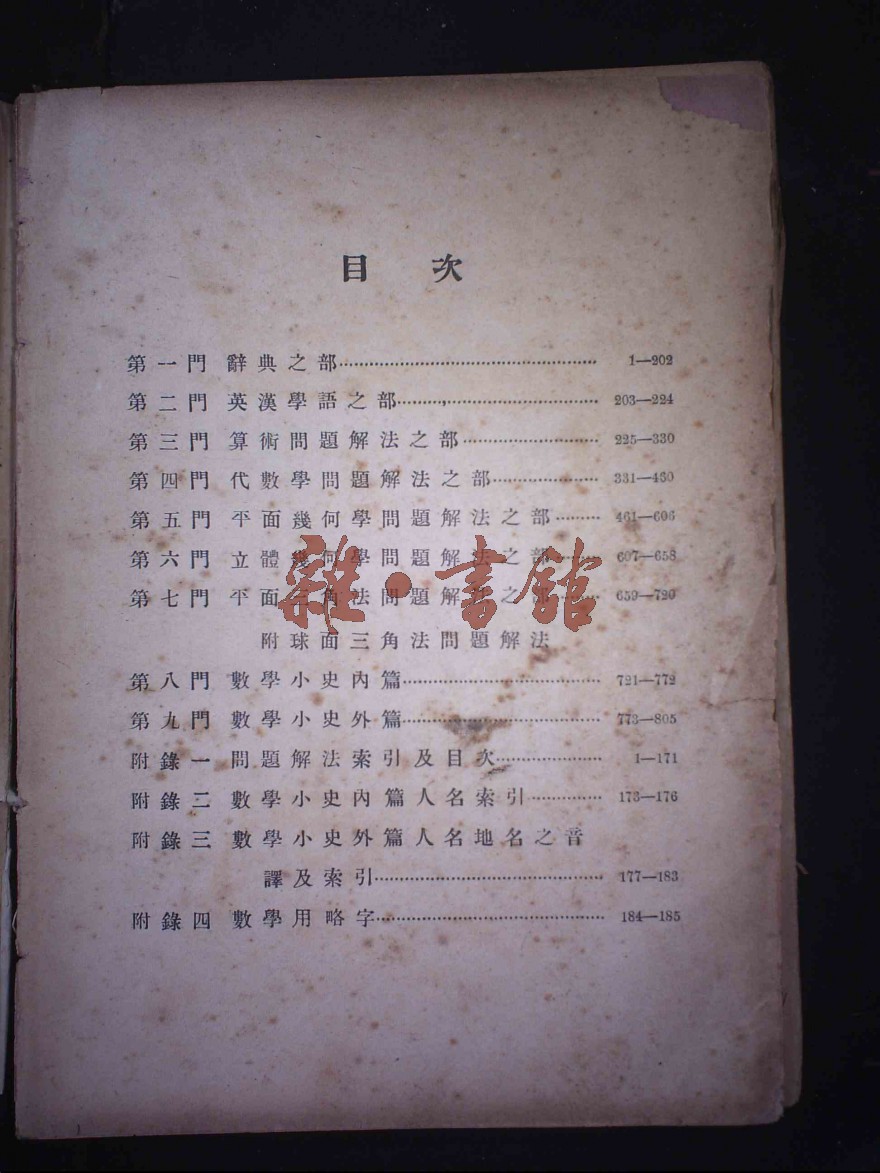 目次
第一門 辭典之部 1—202
第二門 英漢學語之部 203—224
第三門 算術問題解法之部 225—330
第四門 代數學問題解法之部 331—460
第五門 平面幾何學問題解法之部 461—606
第六門 立體幾何學問題解法之部 607—658
第七門 平面三角法問題解法之部 659—720
附球面三角法問題解法
第八門 數學小史內篇 721—772
第九門 數學小史外篇 773—805
附錄一 問題解法索引及目次 1—171
附錄二 數學小史內篇人名索引 173—176
附錄三 數學小史外篇人名地名之音
譯及索引 177—183
附錄四 數學用略字 184—185
雜·書館